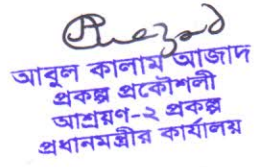 আবুল কালাম আজাদ
প্রকল্প প্রকৌশলী
আশ্রয়ণ-২ প্রকল্প
প্রধানমন্ত্রীর কার্যালয়